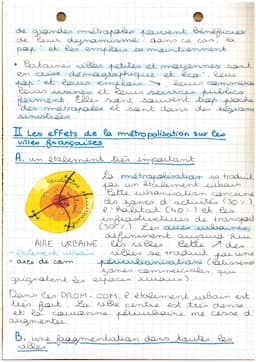 de grandes métropoles peuvent bénéficier
de leur dynamisme : dans ce cas, la
pop° et les emplois se maintiennent.
• Certaines villes petites et moyennes sont
en crise démographique et éco : leur
pop° et leurs emplois ↘, leurs commerces,
leurs usines et leurs services publics
ferment. Elles sont souvent trop proche
des métropoles et sont dans des régions
sinistrées
II Les effets de la métropolisation sur les
villes françaises
A. un étalement très important
La métropolisation se traduit
par un étalement urbain.
Cette urbanisation concerne
les zones d'activités (30%)
l'habitat (40%) et les
infrastructures de transport
(30%). Les aires urbaines
définissent aujourd'hui
les villes. Cette ↗ des
villes se traduit par une
périurbanisation
AIRE URBAINE
- étalement urbain
- axes de com
zones commerciales, qui
grignotent les espaces ruraux)
Dans les DROM-COM, l'étalement urbain est
très fort. La ville centre est très dense
et la couronne périurbaine ne cesse d'
augmenter.
B. une fragmentation dans toutes les
villes